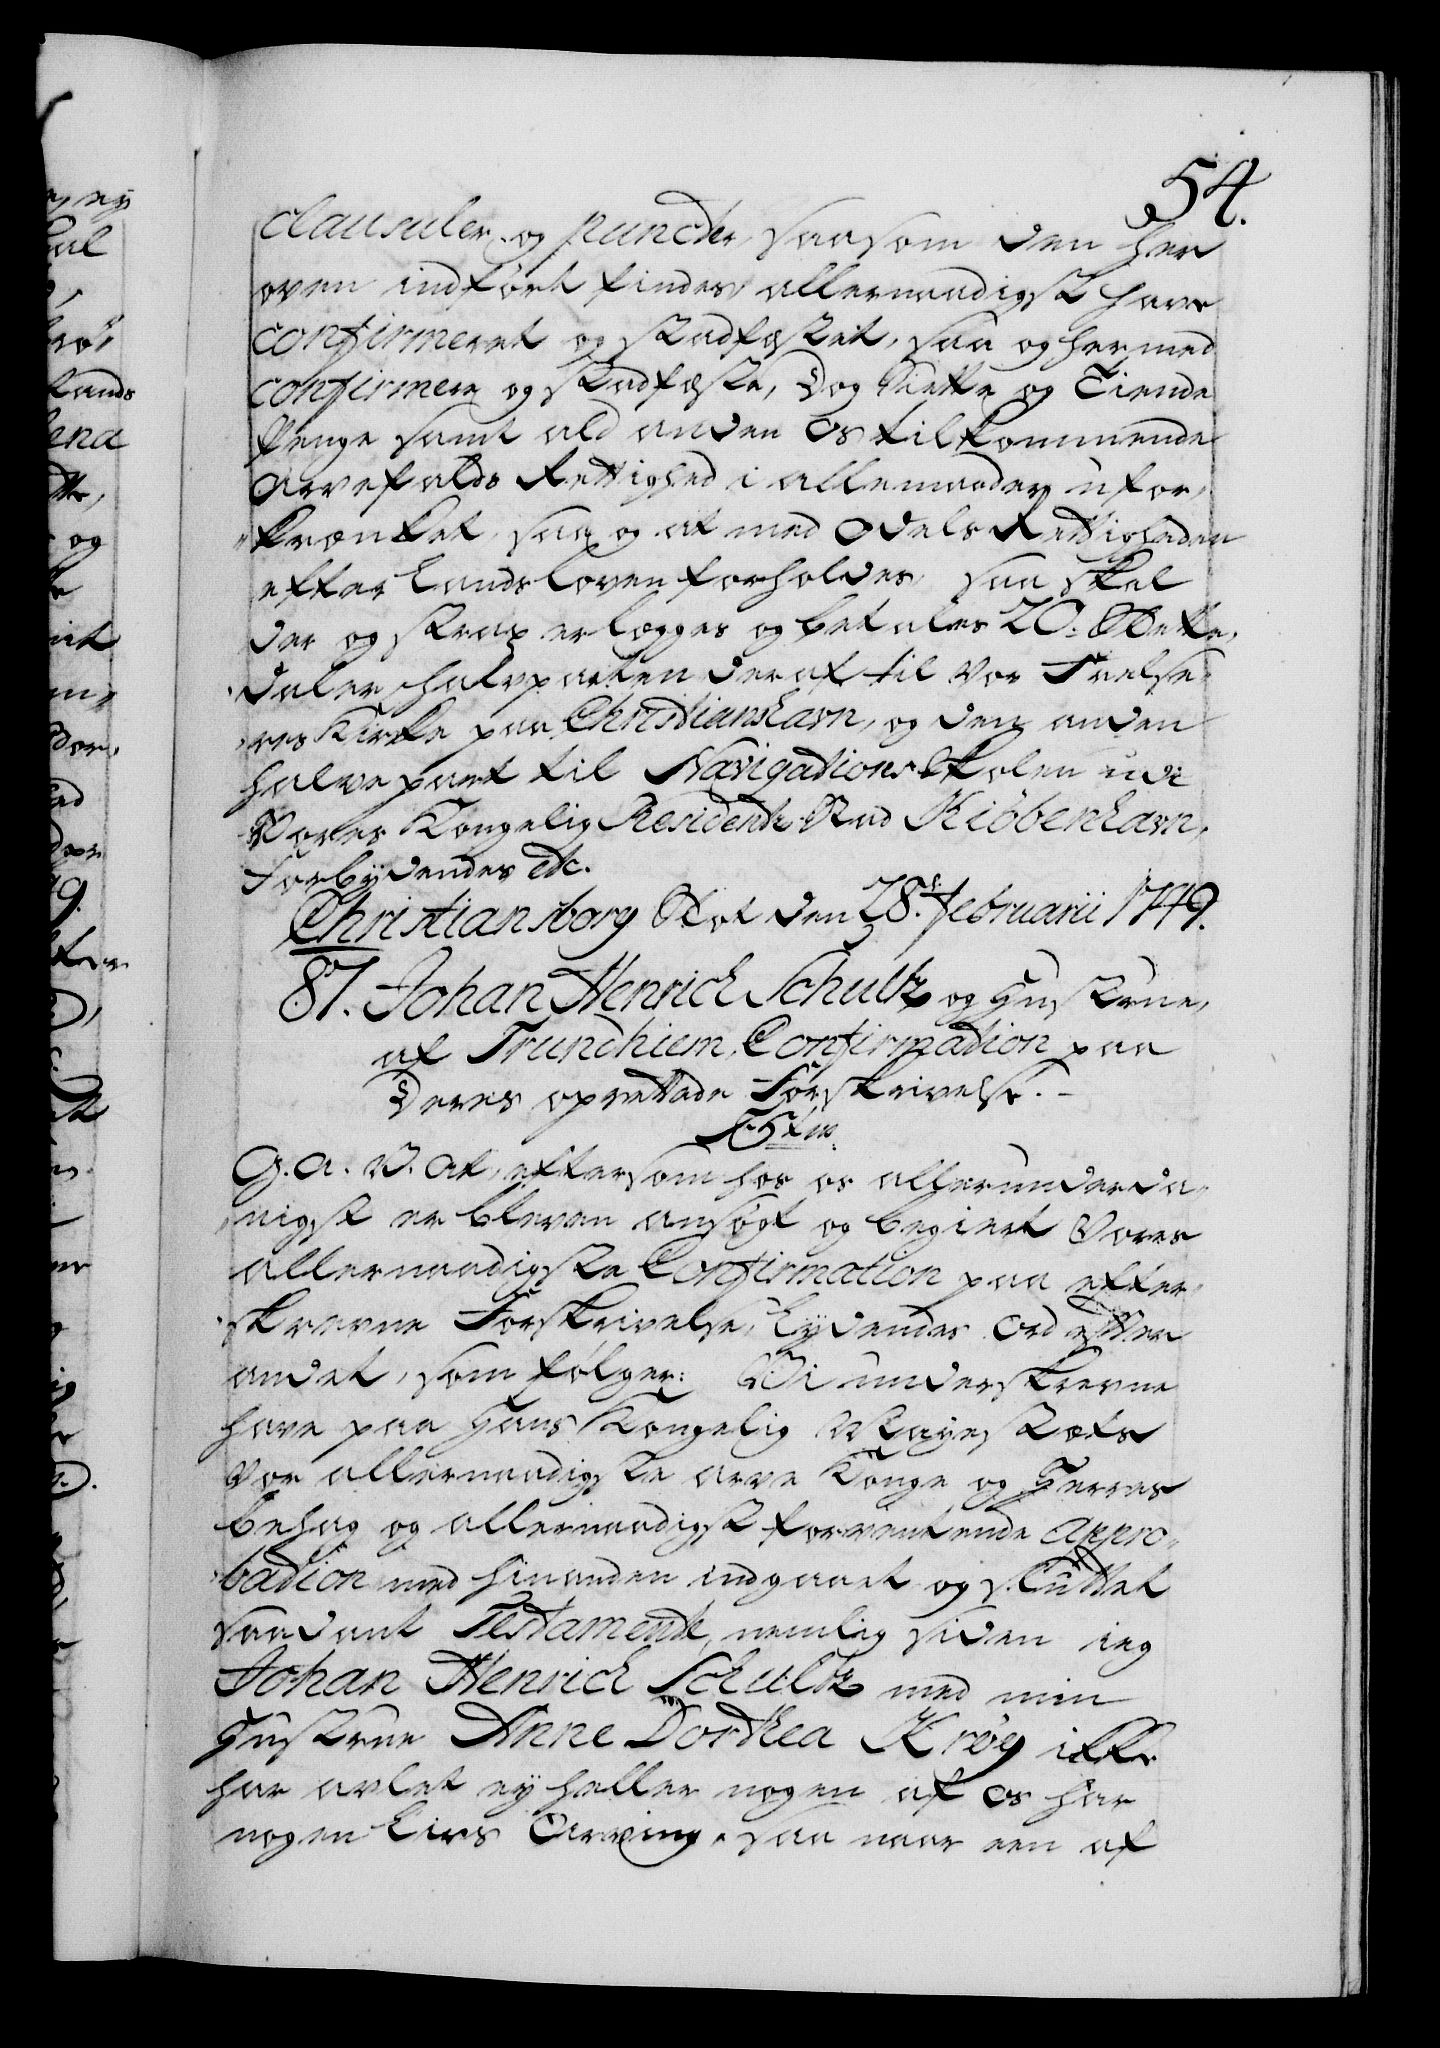 54.
Clausuler og Puncter, saasom den her
oven indført findes, allernaadigst have
confirmeret og stadfæstet, saa og hermed
confirmere og stadfæste, Dog Siette og Tiende
Penge samt ald anden Os tilkommende
Arvefalds Rettighed i allemaader ufor„
„krænket, saa og at med Odels Rettigheden
efter Landsloven forholdes, saa skal
der og strax erlægges og betales 20. Rette
daler halvparten deraf til Vor Frelse„
„res Kirke paa Christianshavn, og den anden
halve part til Navigations Skolen udi
Vores Kongelig Residentz Stad Kiöbenhavn,
Forbydendes etc.
Christiansborg Slot den 28. Februarii 1749.
87. Johan Henrich Schultz og Hustrue,
af Trundhiem, Confirmation paa
Deres oprettede Forskrivelse. -
G. a. V. at, eftersom hos os allerunderda„
„nigst er bleven ansögt og begiert Vores
allernaadigste Confirmation paa efter„
„skrevne Forskrivelse, Lydendes Ord efter
andet, som følger: Vi underskrevne
have paa Hans Kongelig Mayestæts
vor allernaadigste arve Konge og Herres
behag og allernaadigst forventende appro„
„bation med hinanden indgaaet og sluttet
saadant Testamente, nemlig siden ieg
Johan Henrich Schultz med min
Hustrue Anne Dorthea Krøy ikke
har avlet ey heller nogen af os har
nogen Livs Arving, saa naar een af